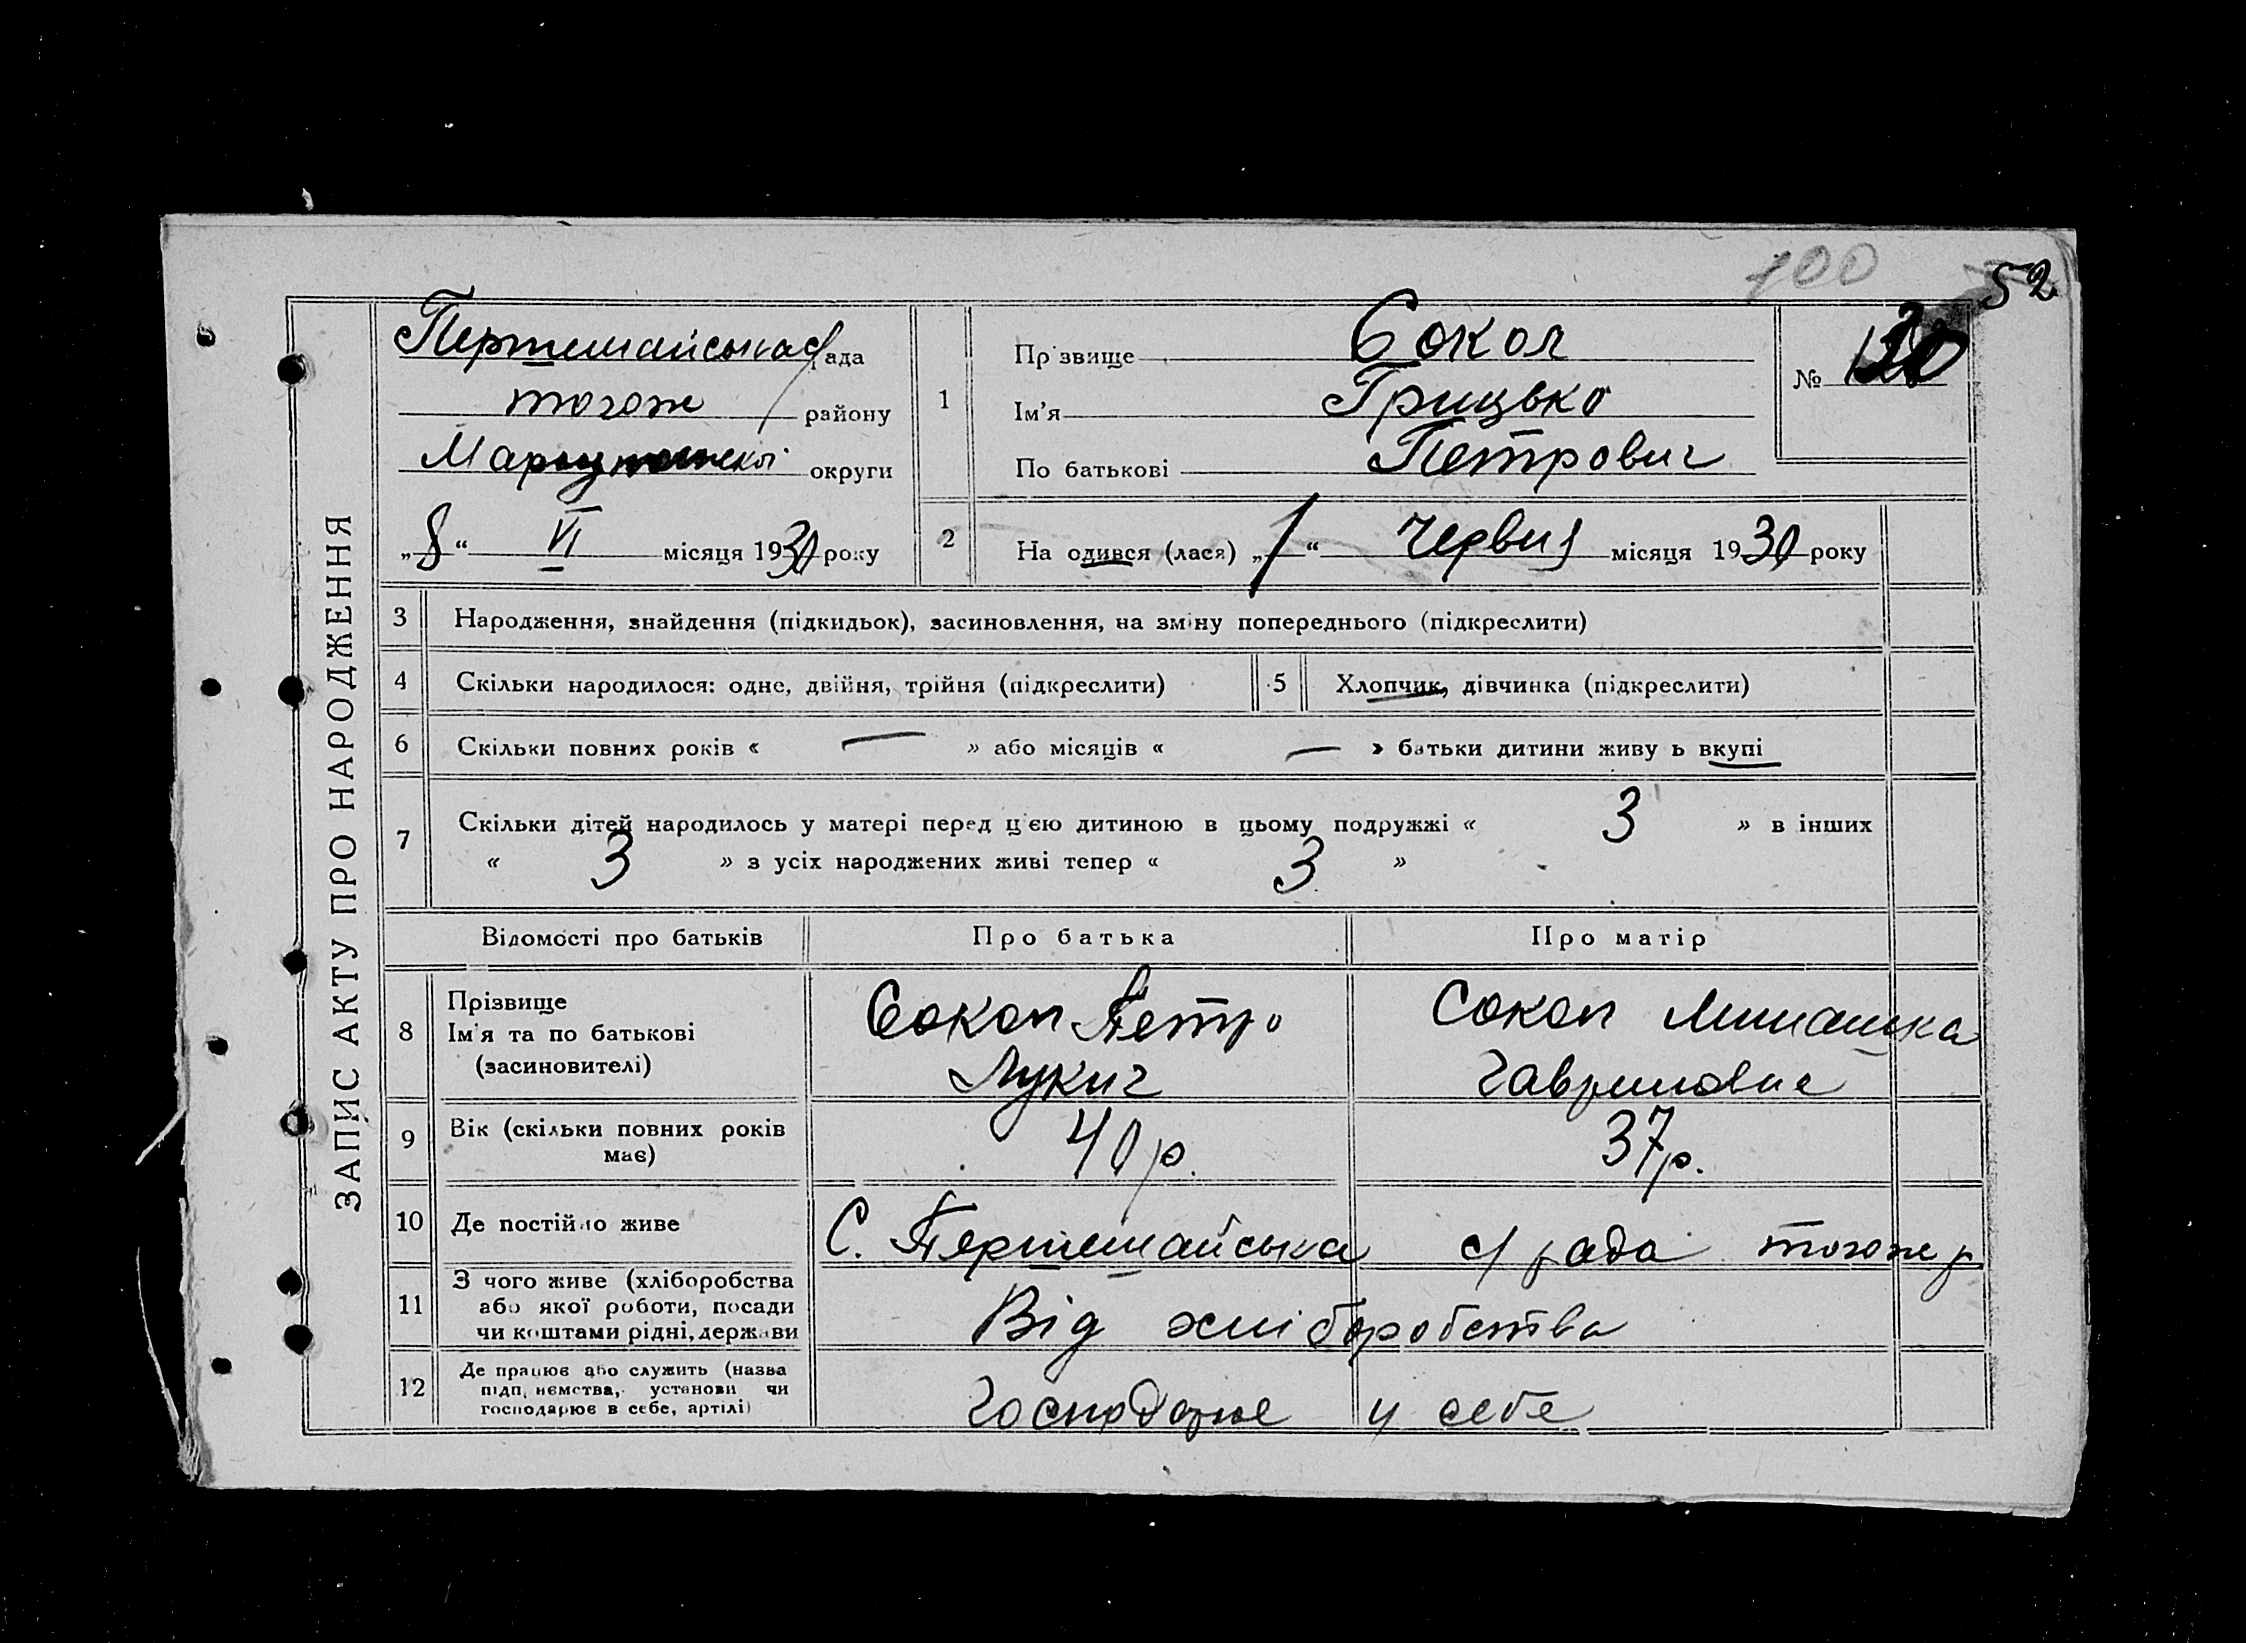 100
52
ЗАПИС АКТУ ПРО НАРОДЖЕННЯ
Першемайська с/рада
тогож району
Маріупольскої округи
„8“ VI місяця 1930 року
1
Прізвище Сокол
Ім'я Грицько
По батькові Петрович
№
2
Народився (лася) „1“ Червня місяця 1930 року
3 Народження, знайдення (підкидьок), засиновлення, на зміну попереднього (підкреслити)
4 Скільки народилося: одне, двійня, трійня (підкреслити)
5 Хлопчик, дівчинка (підкреслити)
6 Скільки повних років « — » або місяців « — » батьки дитини живуть вкупі
7 Скільки дітей народилось у матері перед цією дитиною в цьому подружжі « 3 » в інших
« 3 » з усіх народжених живі тепер « 3 »
Відомості про батьків Про батька Про матір
8 Прізвище
Ім'я та по батькові
(засновителі)
Сокол Петро
Лукич
Сокол
Гавриловна
9 Вік (скільки повних років
має)
40 р.
37 р.
10 Де постійно живе
С. Першемайська с/рада тогож р
11 З чого живе (хліборобства
або якої роботи, посади
чи коштами рідні, держави
Від хліборобства
12 Де працює або служить (назва
підприємства, установи чи
господарює в себе, артілі)
Господарює у себе